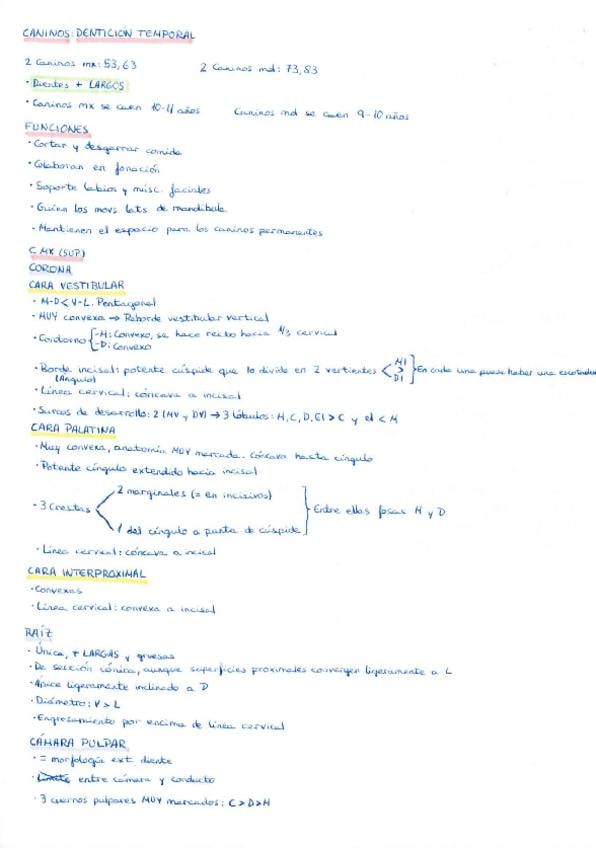 CANINOS: DENTICIÓN TEMPORAL
2 Caninos mx: 53, 63    2 Caninos md: 73, 83
· Dientes + LARGOS
· Caninos mx se caen 10-11 años    Caninos md se caen 9-10 años
FUNCIONES
· Cortar y desgarrar comida
· Colaboran en fonación
· Soporte labios y musc. faciales
· Guían los movs lats. de mandíbula
· Mantienen el espacio para los caninos permanentes
C MX (SUP)
CORONA
CARA VESTIBULAR
· M-D < V-L. Pentagonal
· MUY convexa → Reborde vestibular vertical
· Contorno { -M: Convexo, se hace recto hacia 1/3 cervical
-D: Convexo
· Borde incisal: potente cúspide que lo divide en 2 vertientes < MI > DI ] En cada una puede haber una
(Ángulo)
· Línea cervical: cóncava a incisal
· Surcos de desarrollo: 2 (MV y DV) → 3 lóbulos: M, C, D. El > C y el < M
CARA PALATINA
· Muy convexa, anatomía MUY marcada. Cóncava hasta cíngulo
· Potente cíngulo extendido hacia incisal
· 3 Crestas
2 marginales (= en incisivos)
1 del cíngulo a punta de cúspide
} Entre ellas fosas M y D
· Línea cervical: cóncava a incisal
CARA INTERPROXIMAL
· Convexas
· Línea cervical: convexa a incisal
RAÍZ
· Única, + LARGAS y gruesas
· De sección cónica, aunque superficies proximales convergen ligeramente a L
· Ápice ligeramente inclinado a D
· Diámetro: V > L
· Engrosamiento por encima de línea cervical
CÁMARA PULPAR
· = morfología ext. diente
· Límite entre cámara y conducto
· 3 cuernos pulpares MUY marcados: C > D > M